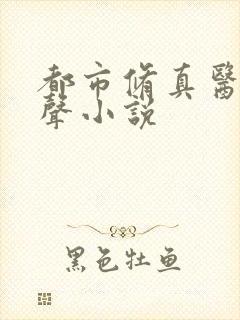 都市脩真醫
聲小説
黑色牡鱼